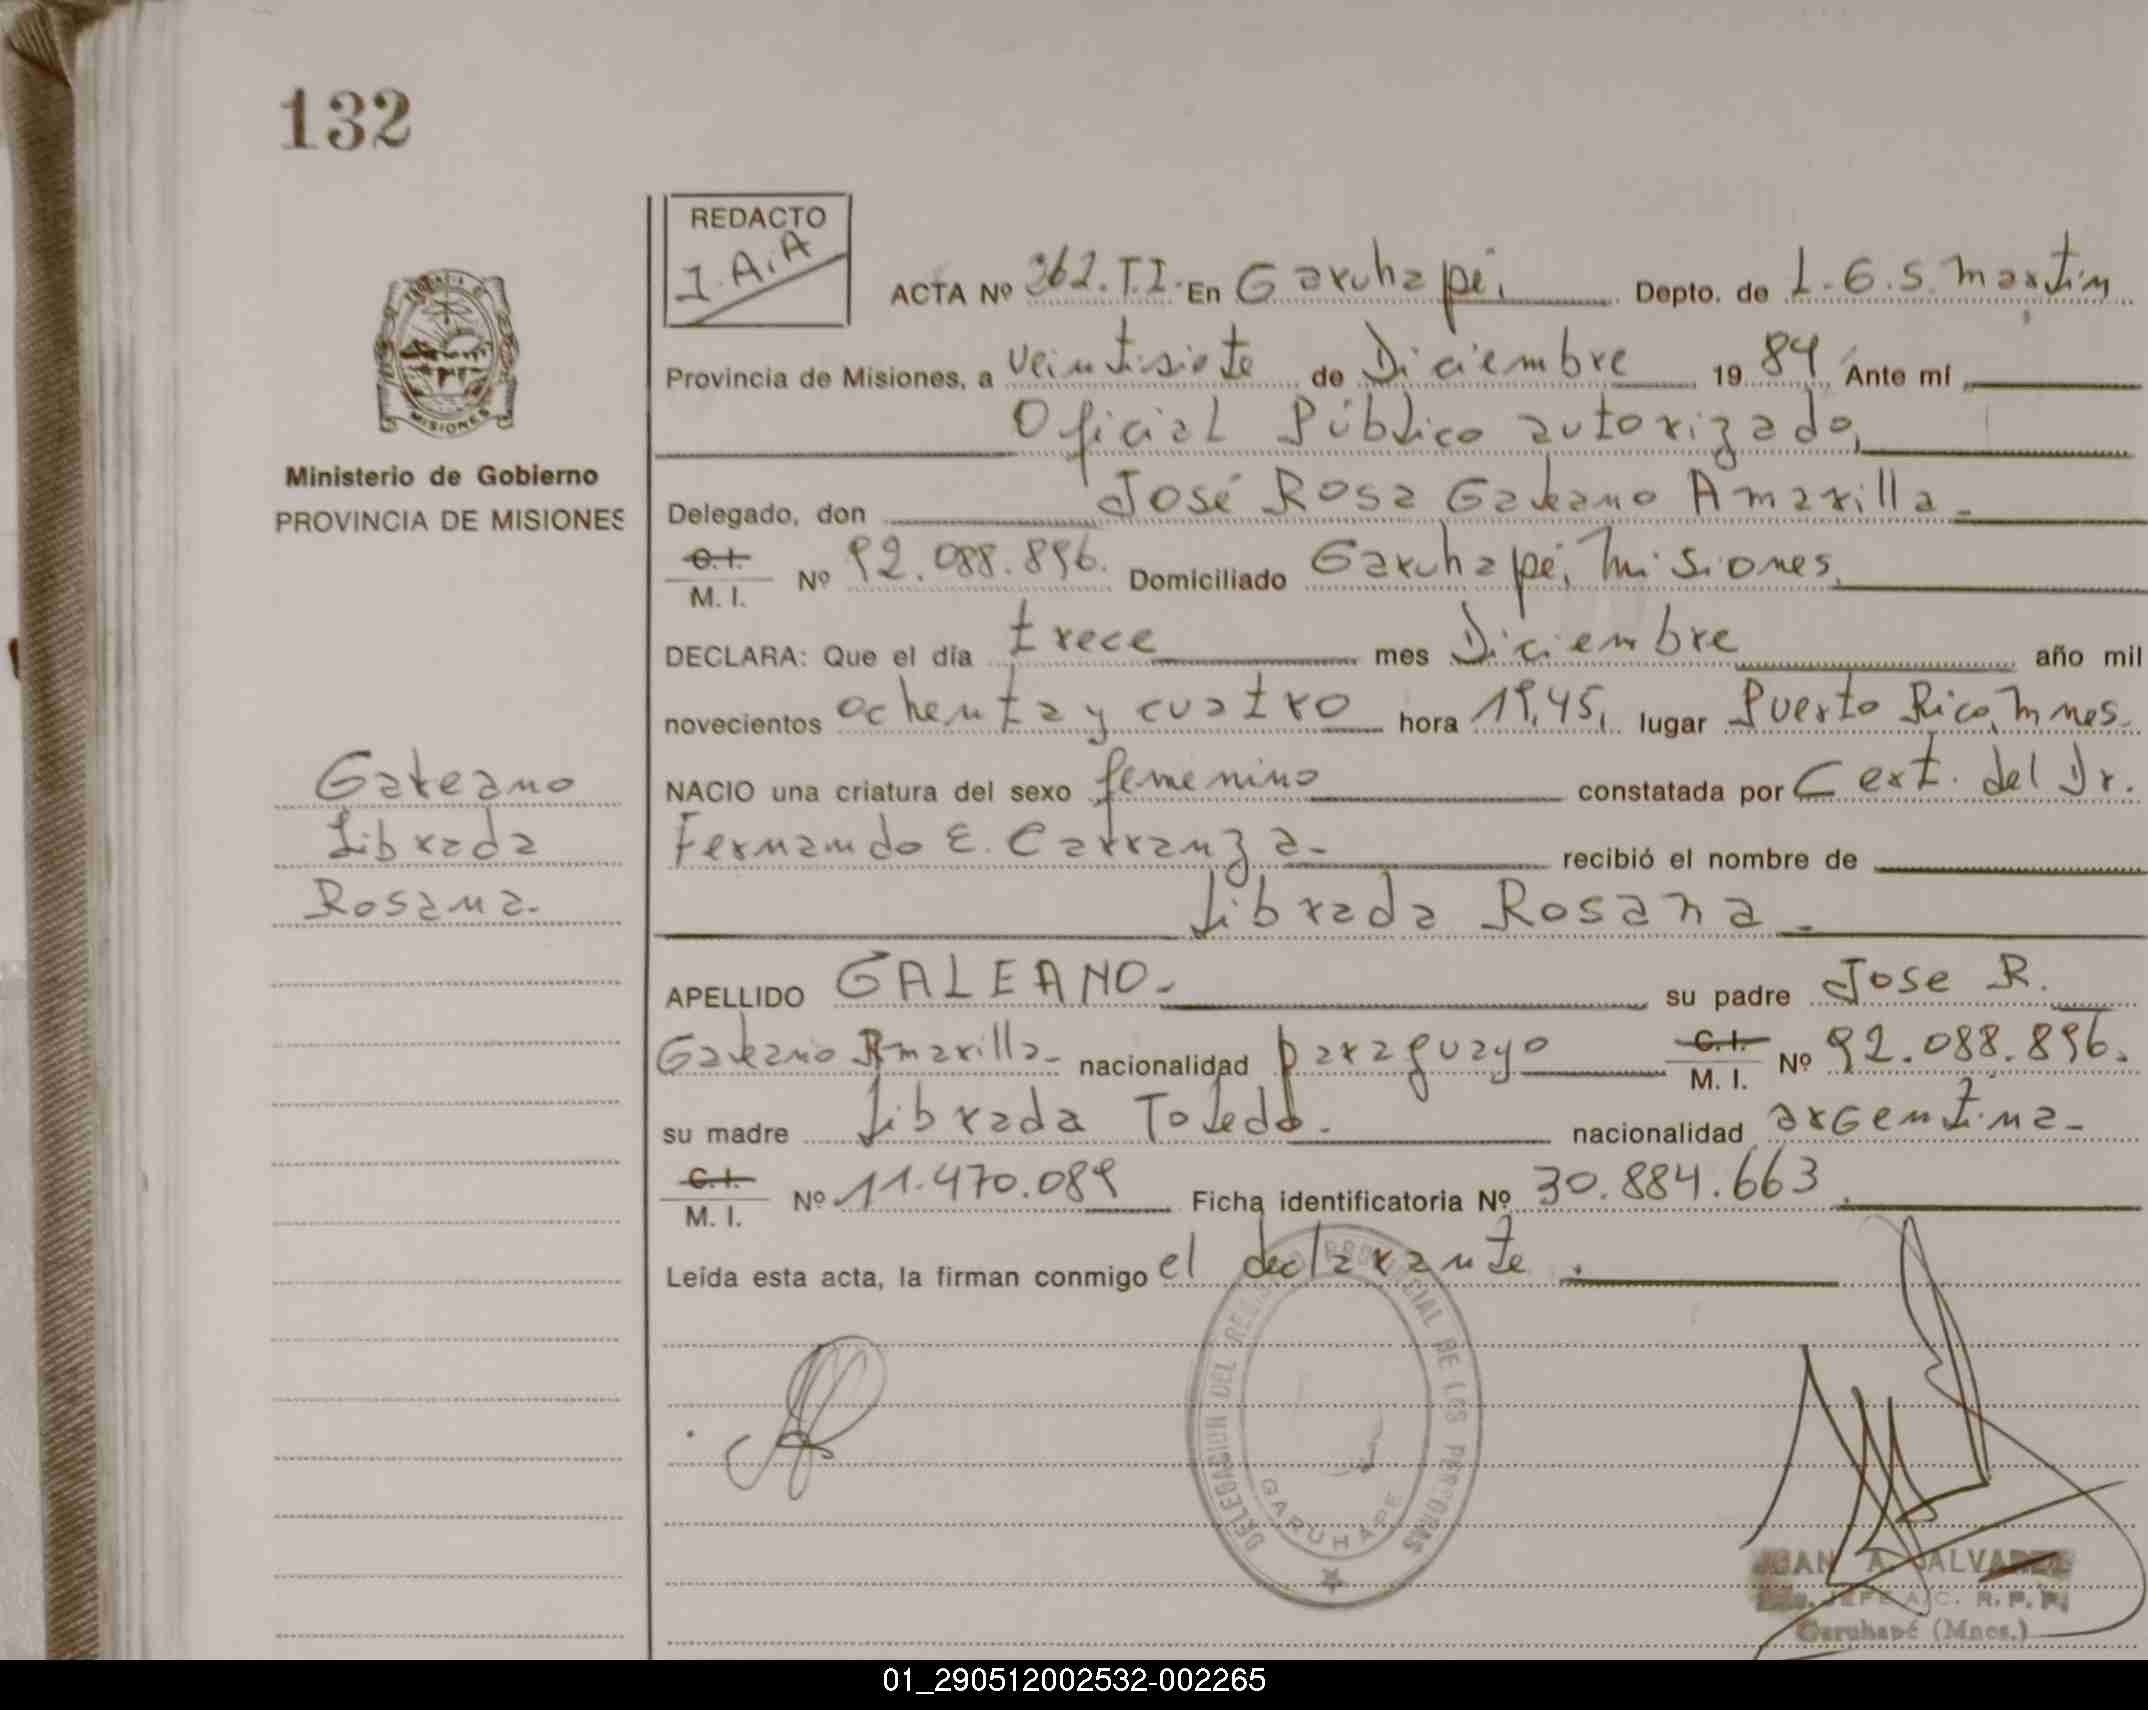 132
REDACTO
J.A.A
ACTA Nº 362.T.I. En Garuhapé, Depto. de L.G.S. Martin
Provincia de Misiones, a veintisiete de Diciembre 19 84 Ante mí
Oficial Público autorizado,
Delegado, don José Rosa Galeano Amarilla.
C.I. M. I. Nº 92.088.896. Domiciliado Garuhapé, Misiones.
DECLARA: Que el día trece mes Diciembre año mil
novecientos ochenta y cuatro hora 19,45, lugar Puerto Rico, Mnes.
NACIO una criatura del sexo femenino constatada por Cert. del Dr.
Fernando E. Carranza. recibió el nombre de
Librada Rosana.
APELLIDO GALEANO. su padre Jose R.
Galeano Amarilla. nacionalidad paraguayo C.I. M. I. Nº 92.088.896.
su madre Librada Toledo. nacionalidad argentina.
C.I. M. I. Nº 11.470.089 Ficha identificatoria Nº 30.884.663.
Leída esta acta, la firman conmigo el declarante.
MISIONES
Ministerio de Gobierno
PROVINCIA DE MISIONES
Galeano
Librada
Rosana.
DELEGACION DEL REGISTRO PROVINCIAL DE LAS PERSONAS
GARUHAPE
JUAN A. ALVAREZ
JEFE A/C. R. P. P.
Garuhapé (Mnes.)
01_290512002532-002265